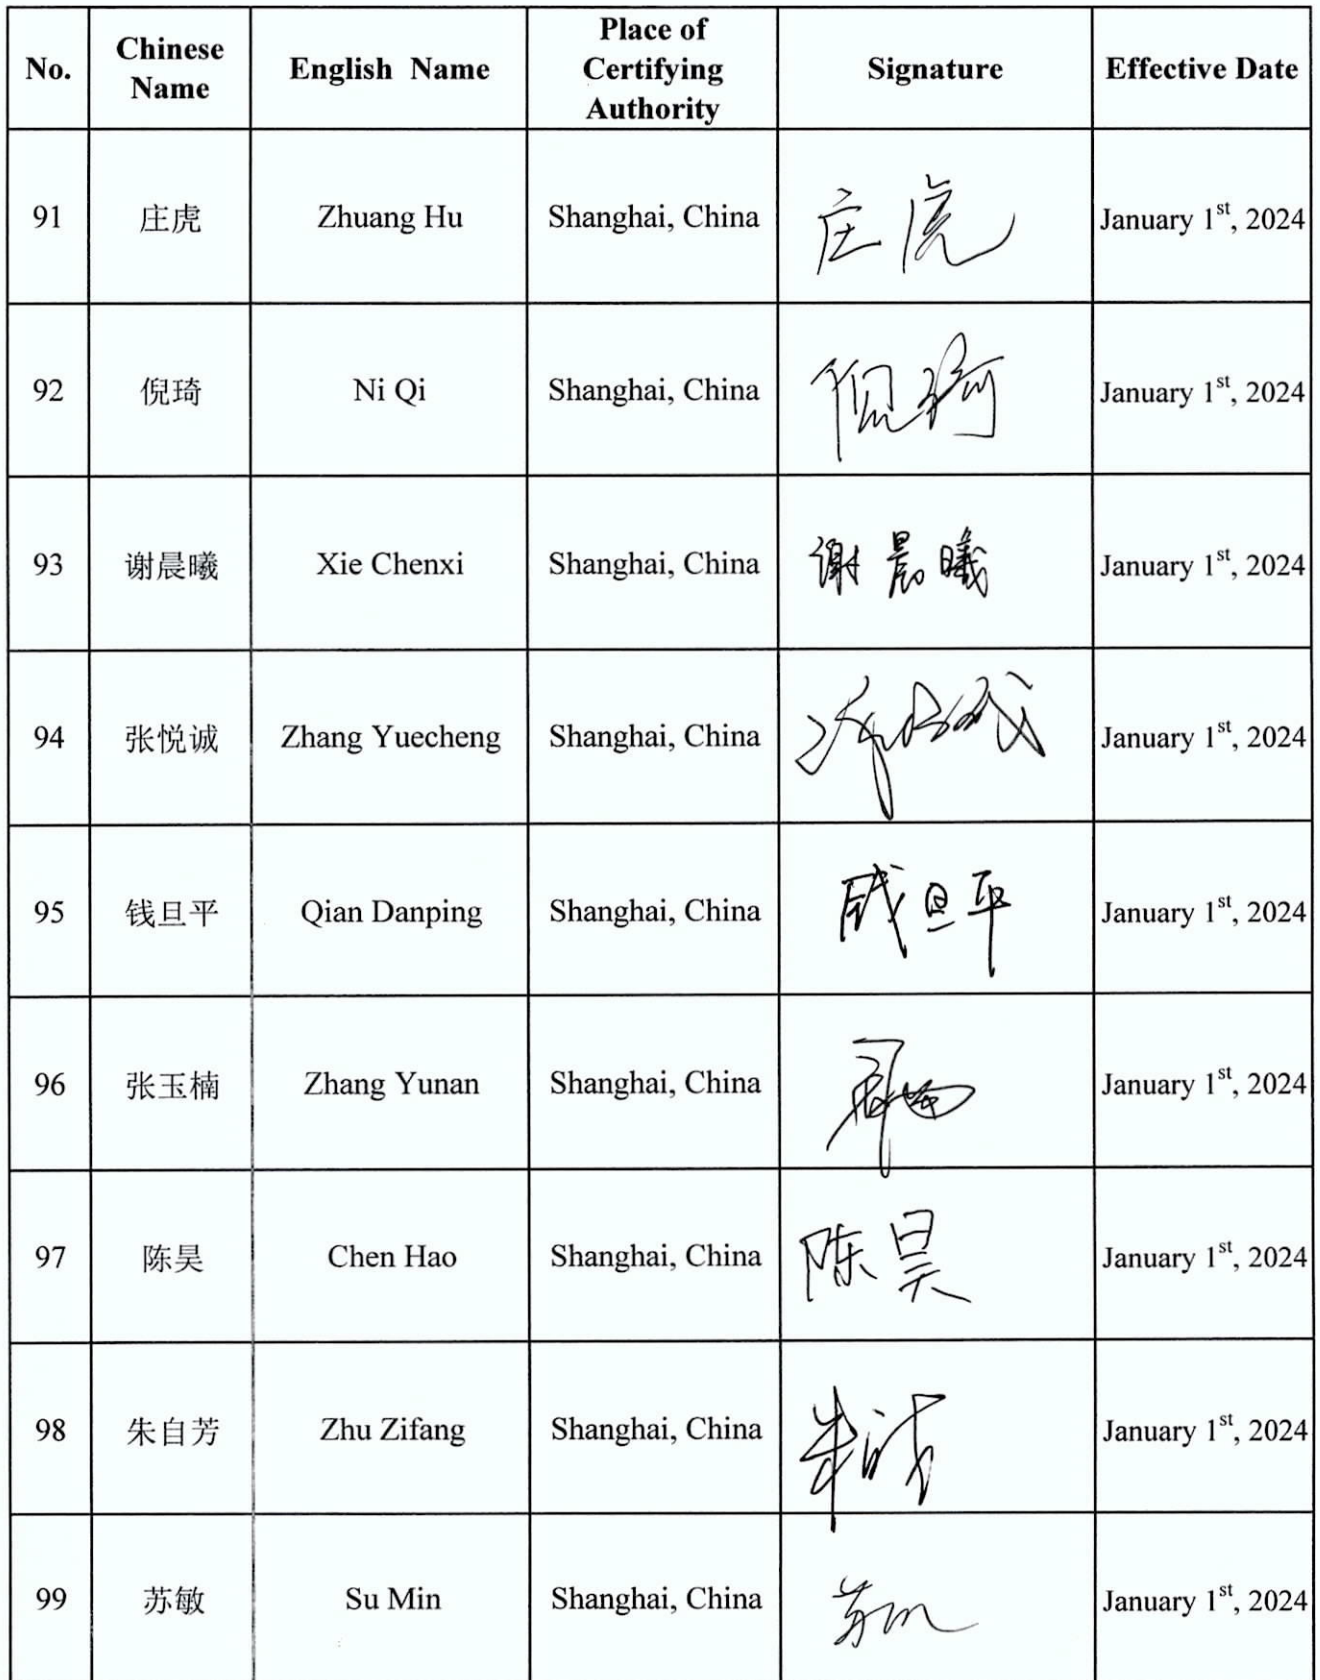 No. Chinese Name English Name Place of Certifying Authority Signature Effective Date
91 庄虎 Zhuang Hu Shanghai, China 庄虎 January 1st, 2024
92 倪琦 Ni Qi Shanghai, China 倪琦 January 1st, 2024
93 谢晨曦 Xie Chenxi Shanghai, China 谢晨曦 January 1st, 2024
94 张悦诚 Zhang Yuecheng Shanghai, China January 1st, 2024
95 钱旦平 Qian Danping Shanghai, China 钱旦平 January 1st, 2024
96 张玉楠 Zhang Yunan Shanghai, China January 1st, 2024
97 陈昊 Chen Hao Shanghai, China 陈昊 January 1st, 2024
98 朱自芳 Zhu Zifang Shanghai, China January 1st, 2024
99 苏敏 Su Min Shanghai, China January 1st, 2024